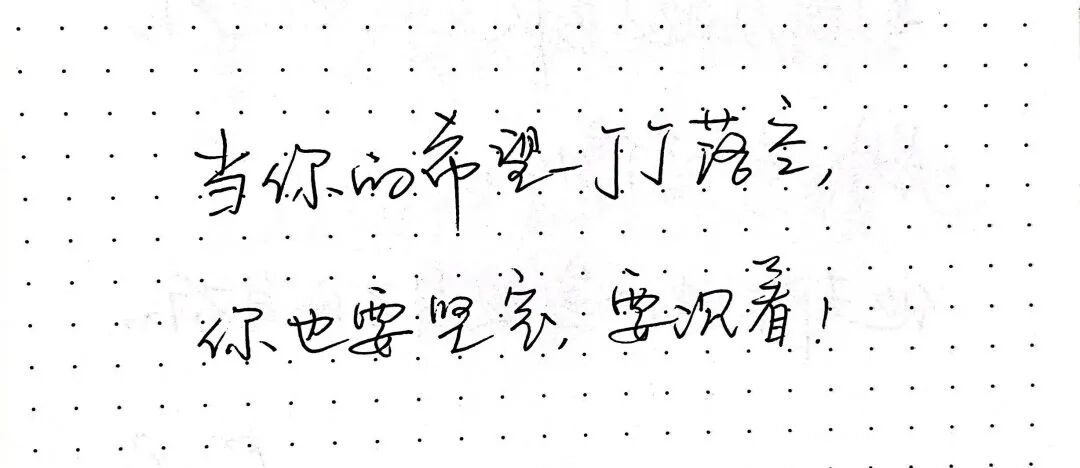 当你的希望一个个落空,
你也要坚定,要沉着!